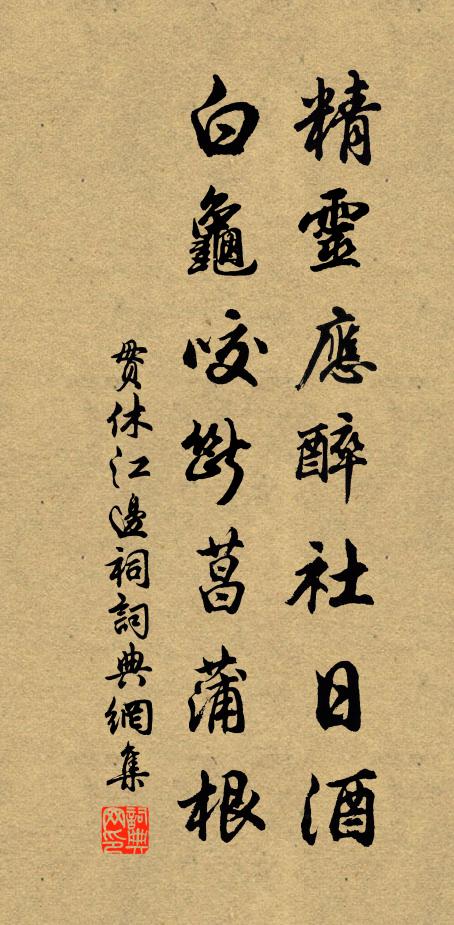 精靈應醉社日酒
白龜咬斷菖蒲根
貫休江邊祠詞典網集
詞典网印